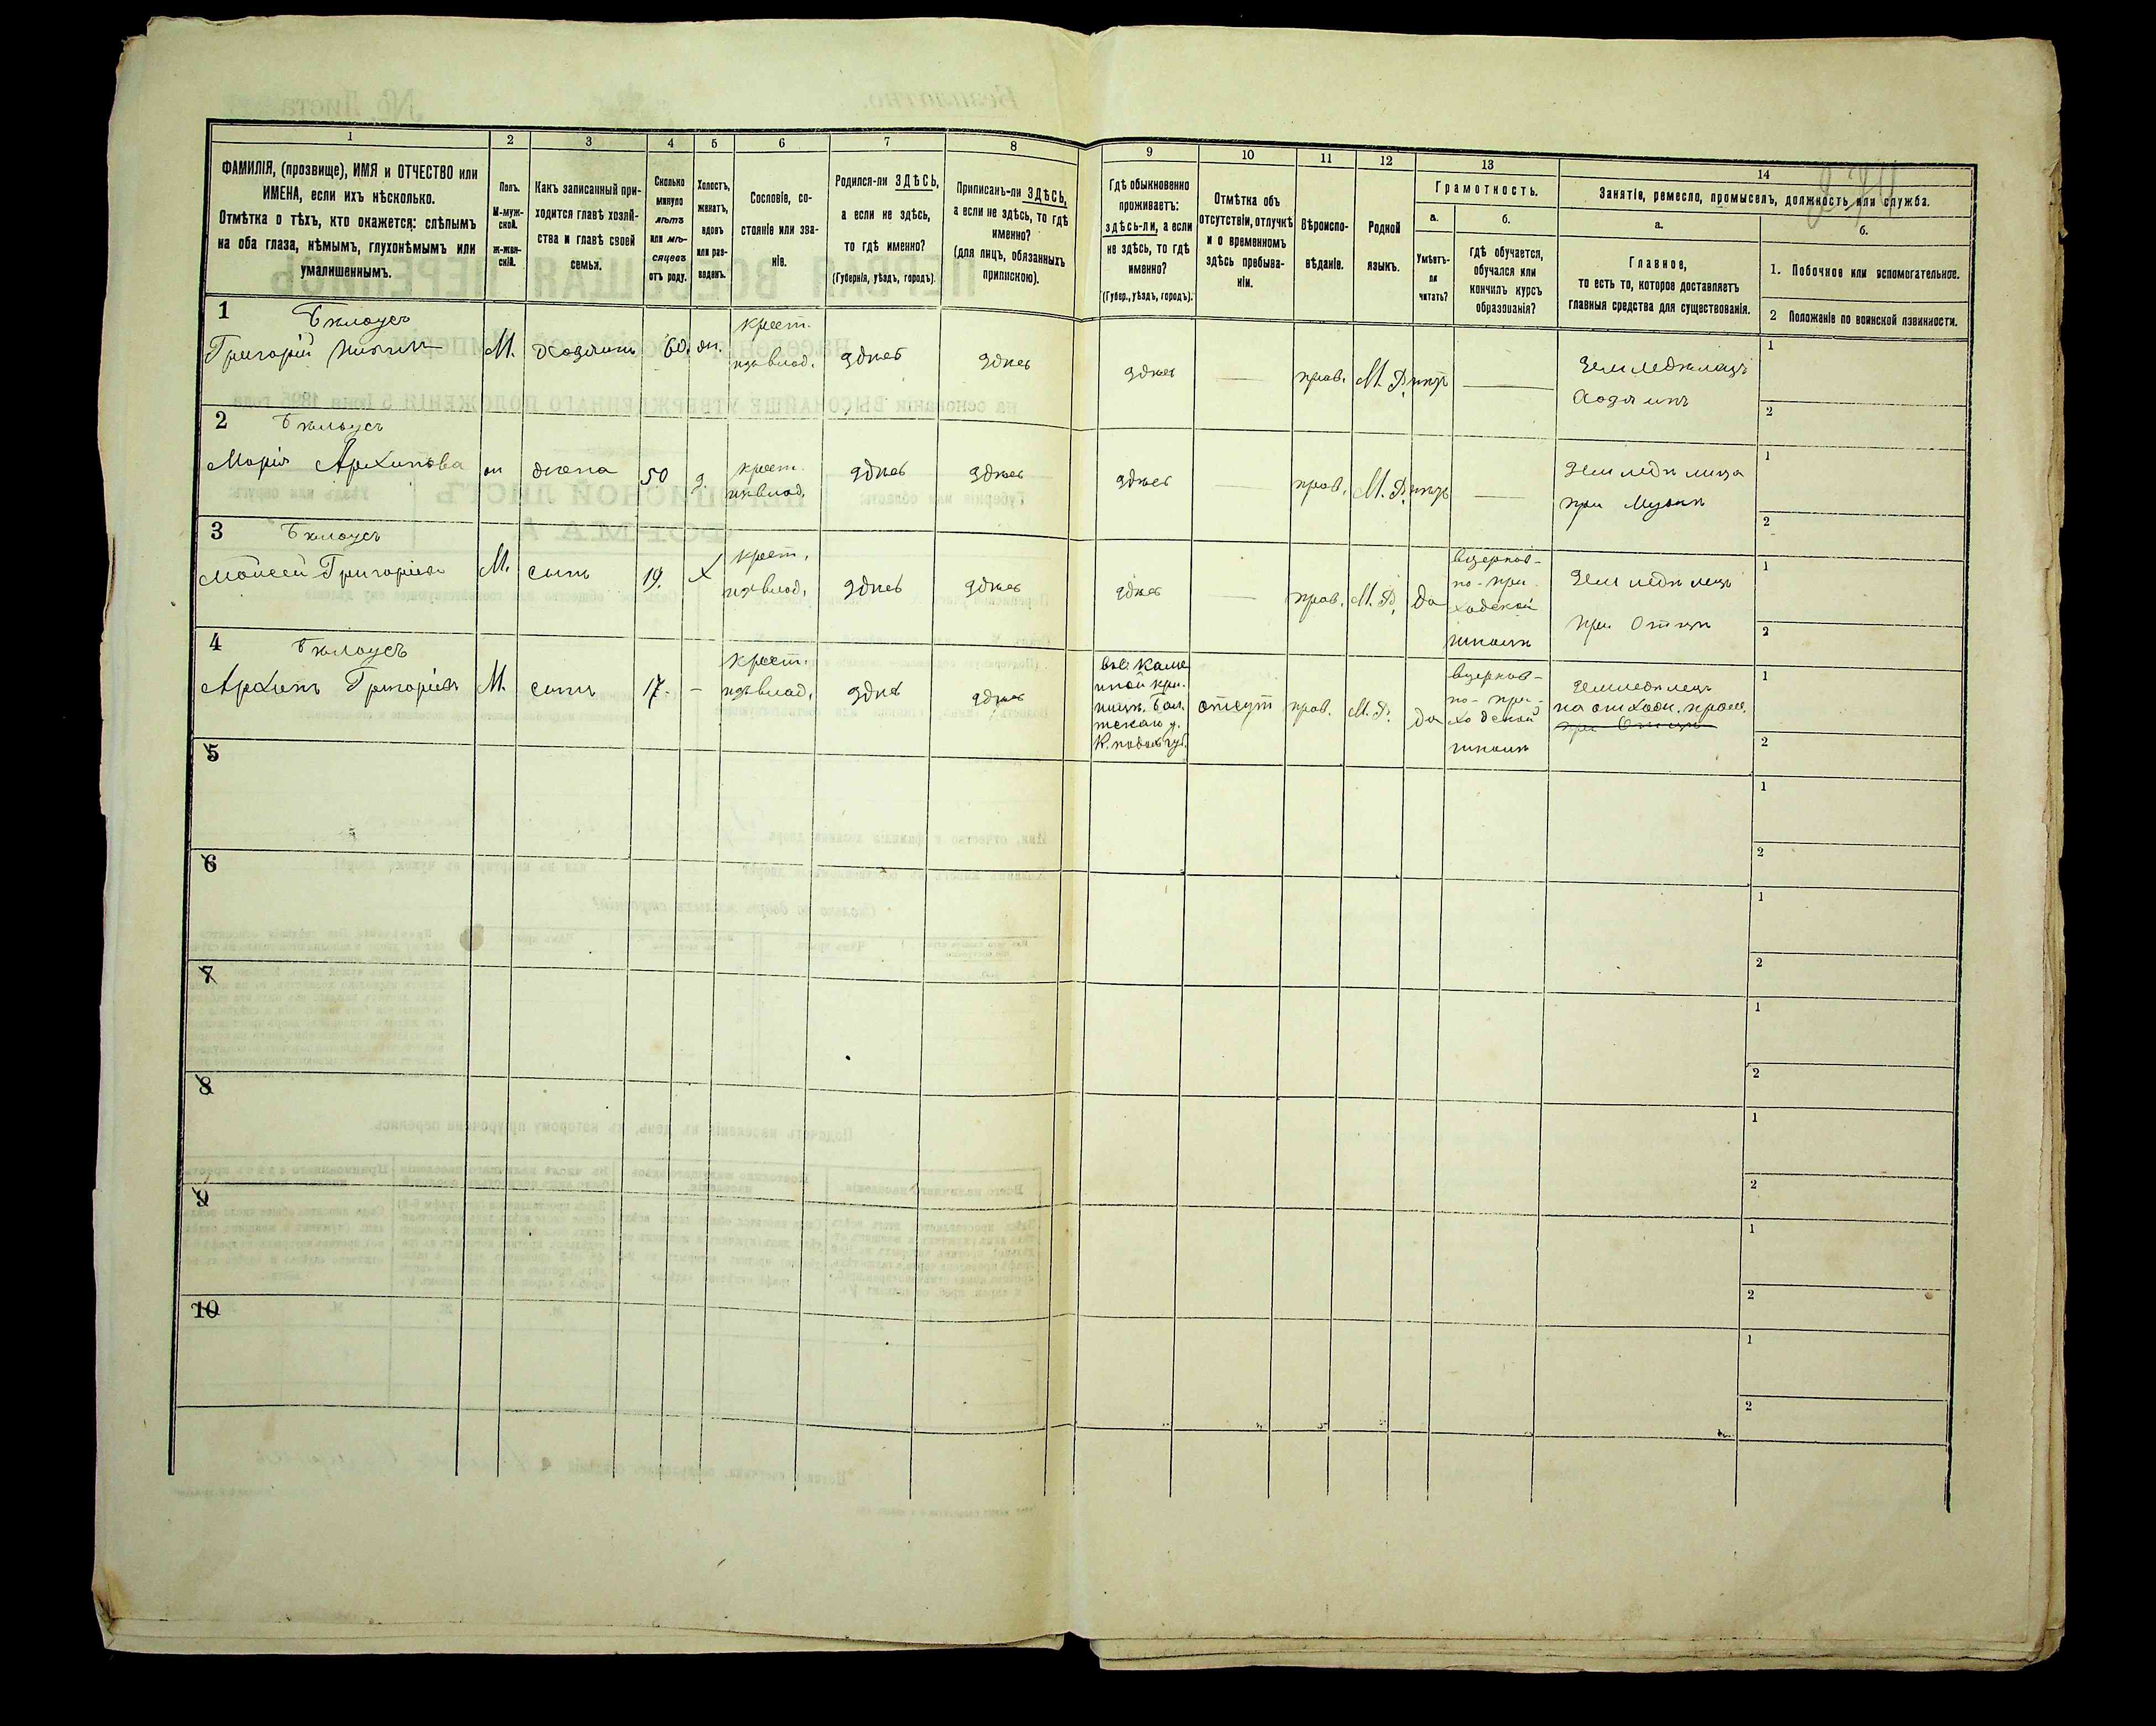 1 2 3 4 5 6 7 8 9 10 11 12 13 14
ФАМИЛІЯ, (прозвище), ИМЯ и ОТЧЕСТВО или
ИМЕНА, если ихъ нѣсколько.
Отмѣтка о тѣхъ, кто окажется: слѣпымъ
на оба глаза, нѣмымъ, глухонѣмымъ или
умалишеннымъ.
Полъ.
М-муж-
ской.
Ж-жен-
скій.
Какъ записанный при-
ходится главѣ хозяй-
ства и главѣ своей
семьи.
Сколько
минуло
лѣтъ
или мѣ-
сяцевъ
отъ роду.
Холостъ,
женатъ,
вдовъ
или раз-
веденъ.
Сословіе, со-
стояніе или зва-
ніе.
Родился-ли ЗДѢСЬ,
а если не здѣсь,
то гдѣ именно?
(Губернія, уѣздъ, городъ).
Приписанъ-ли ЗДѢСЬ,
а если не здѣсь, то гдѣ
именно?
(для лицъ, обязанныхъ
припискою).
Гдѣ обыкновенно
проживаетъ:
здѣсь-ли, а если
не здѣсь, то гдѣ
именно?
(Губер., уѣздъ, городъ).
Отмѣтка объ
отсутствіи, отлучкѣ
и о временномъ
здѣсь пребыва-
ніи.
Вѣроиспо-
вѣданіе.
Родной
языкъ.
Грамотность.
а.
Умѣетъ-
ли
читать?
б.
гдѣ обучается,
обучался или
кончилъ курсъ
образованія?
Занятіе, ремесло, промыселъ, должность или служба.
а.
Главное,
то есть то, которое доставляетъ
главныя средства для существованія.
б.
1. Побочное или вспомогательное.
2 Положеніе по воинской повинности.
1
Бѣлоусъ
Григорій
М.
хозяинъ
60.
жн.
крест.
изъ влад.
здѣсь
здѣсь
здѣсь
—
прав.
М. Р.
нѣтъ
—
Земледѣлецъ
Хозяинъ
1
2
2
Бѣлоусъ
Марія Архипова
жн
жена
50
з.
крест.
изъ влад.
здѣсь
здѣсь
здѣсь
—
прав.
М. Р.
нѣтъ
—
Земледѣлица
при Мужѣ
1
2
3
Бѣлоусъ
Моисей Григоріевъ
М.
сынъ
19.
Х
крест.
изъ влад.
здѣсь
здѣсь
здѣсь
—
прав.
М. Р.
да
въ церков-
но-при
ходской
школѣ
Земледѣлецъ
при Отцѣ
1
2
4
Бѣлоусъ
Архипъ Григоріевъ
М.
сынъ
17.
–
крест.
изъ влад.
здѣсь
здѣсь
въ с. Каме
нной кри-
ницѣ, Бал.
тскаго у.
отсут
прав.
М. Р.
да
въ церков-
но-при-
ходской
школѣ
Земледѣлецъ
на отхож. пром.
при Отцѣ
1
2
5
1
2
6
1
2
7
1
2
8
1
2
9
1
2
10
1
2